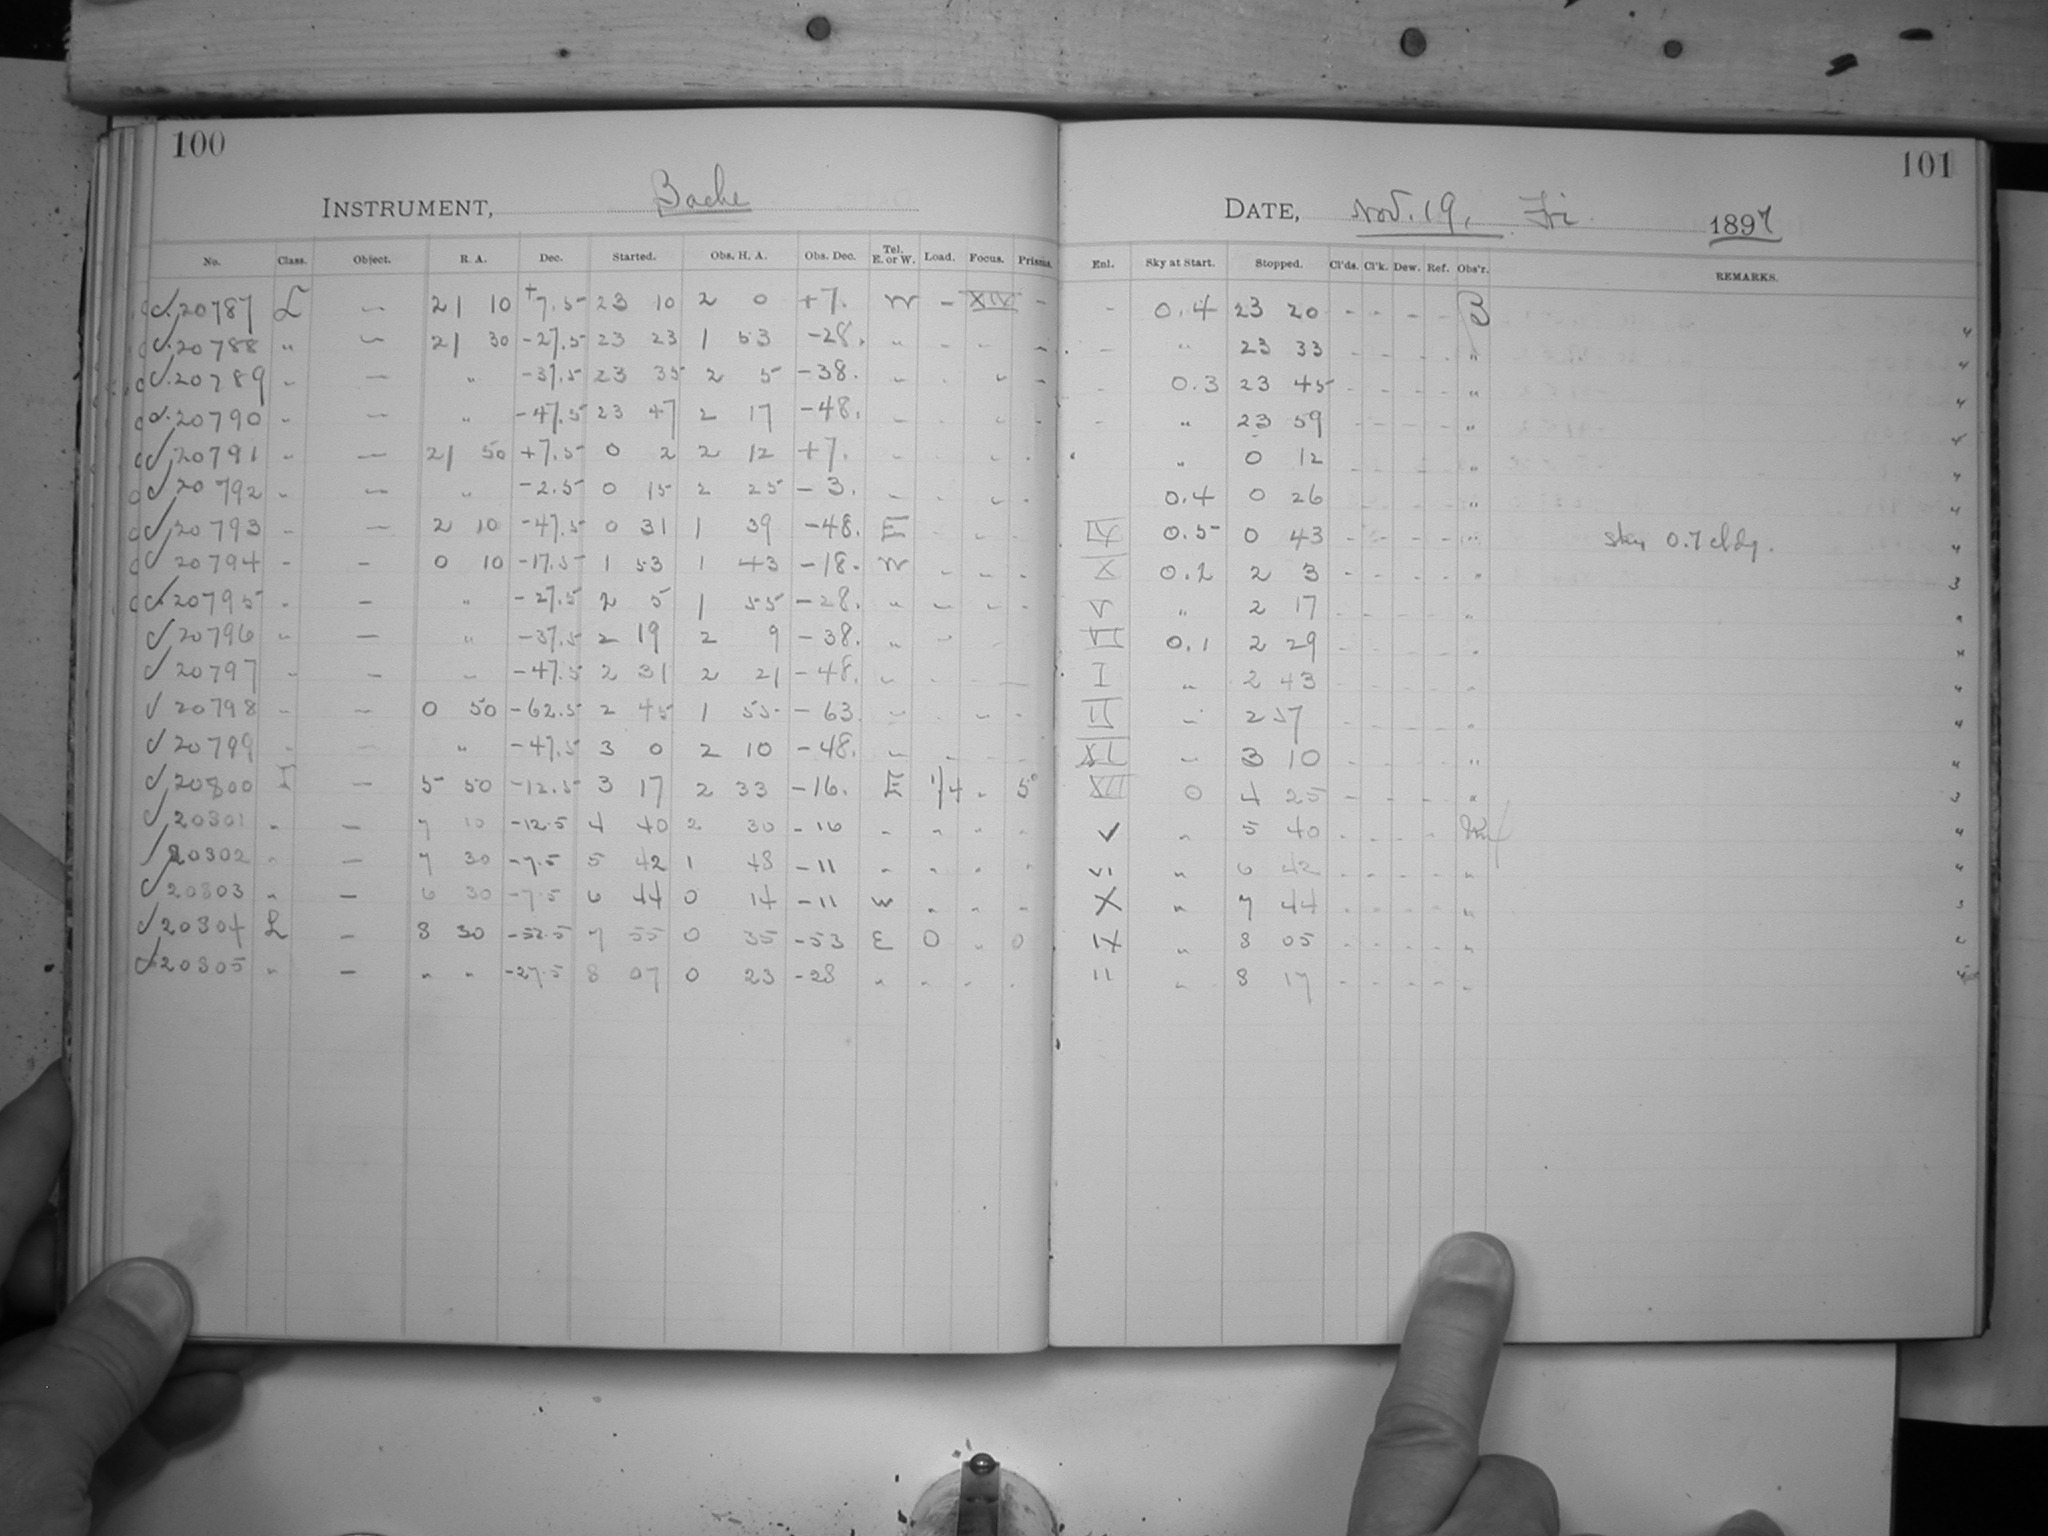 100
INSTRUMENT, Bache
No. Class. Object. R. A. Dec. Started. Obs. H. A. Obs. Dec. Tel. E. or W. Load. Focus. Prisms.
20787 L — 21 10 +7.5 23 10 2 0 +7. W - XIV -
20788 " — 21 30 -27.5 23 23 1 53 -28. " - - -
20789 " — " -37.5 23 35 2 5 -38. - - " -
20790 " — " -47.5 23 47 2 17 -48. - - - -
20791 " — 21 50 +7.5 0 2 2 12 +7. - - " -
20792 " — " -2.5 0 15 2 25 -3. - - " -
20793 - — 2 10 -47.5 0 31 1 39 -48. E - - -
20794 - - 0 10 -17.5 1 53 1 43 -18. W - - -
20795 - - " -27.5 2 5 1 55 -28. " - - -
20796 " — " -37.5 2 19 2 9 -38. " - -
20797 " - " -47.5 2 31 2 21 -48. " - - -
20798 - — 0 50 -62.5 2 45 1 55 -63. - - - -
20799 - — " -47.5 3 0 2 10 -48. - - - -
20800 I — 5 50 -12.5 3 17 2 33 -16. E 1/4 - 5°
20801 " — 7 10 -12.5 4 40 2 30 -16 " " " "
20802 " — 7 30 -7.5 5 42 1 48 -11 " " " "
20803 " — 6 30 -7.5 6 44 0 14 -11 W " " "
20804 L — 8 30 -52.5 7 55 0 35 -53 E 0 " 0
20805 " — " " -27.5 8 07 0 23 -28 " " " "
101
DATE, Nov. 19, Fri 1897
Enl. Sky at Start. Stopped. Cl'ds. Cl'k. Dew. Ref. Obs'r. REMARKS.
- 0.4 23 20 - - - - B
- " 23 33 - - - - " 4
- 0.3 23 45 - - - - " 4
- " 23 59 - - - - " 4
" 0 12 - - - - " 4
0.4 0 26 - - - - " 4
IX 0.5 0 43 - - - - " sky 0.7 cldy. 4
X 0.2 2 3 - - - - " 3
V " 2 17 - - - - "
VI 0.1 2 29 - - - - "
I " 2 43 - - - - "
II " 2 57 - - - - "
XI " 3 10 - - - - "
XII 0 4 25 - - - - " 3
V " 5 40 - - - -
VI " 6 42 - - - - "
X " 7 44 - - - - "
IX " 8 05 - - - - "
" " 8 17 - - - - "